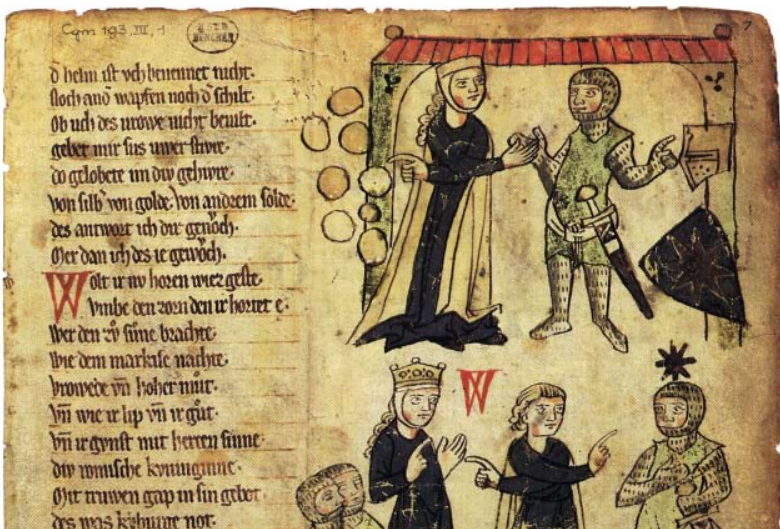 Cgm 193, III, 1
7
d helm ist vch benennet nicht.
Noch and wapfen noch d schilt.
Ob uch des urowe nicht beuilt.
gebet mir sus uwer stivre.
do gelobete im div gehivre.
von silb von golde von andrem solde.
des antwort ich dir genoch.
Mer dan ich des ie gewoch.
Wolt ir nv horen wiez geste
Vmbe den zorn den ir hortet e.
Wer den zv svne brachte
Wie dem markise nachte
Vrowede vn hoher mut.
Vn wie ir lip vn ir gut
Vn ir gvnst mit herzen sinne.
div romische kvniginne.
Mit truwen gap in sin gebot.
des was not.
W